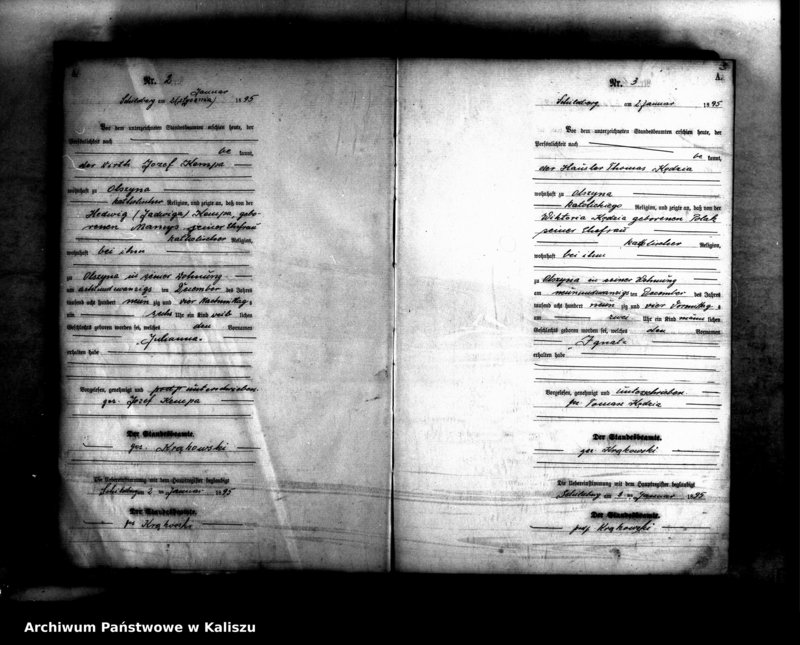 Nr. 2
Januar
Schildberg am 2 18 95
Vor dem unterzeichneten Standesbeamten erschien heute, der
Persönlichkeit nach
be kannt,
der Wirth Jozef Kempa
wohnhaft zu Olszyna
katholischer Religion, und zeigte an, daß von der
Hedwig (Jadwiga) Kempa, gebo-
renen seiner Ehefrau
katholischer Religion,
wohnhaft bei ihm
zu Olszyna in seiner Wohnung
am achtundzwanzigsten December des Jahres
tausend acht hundert neunzig und vier Nachmittags
um sechs Uhr ein Kind weib lichen
Geschlechts geboren worden sei, welches den Vornamen
Julianna
erhalten habe
Vorgelesen, genehmigt und unterschrieben
gez. Jozef Kempa
Der Standesbeamte.
gez. Krąkowski
Die Uebereinstimmung mit dem Hauptregister beglaubigt
Schildberg, 2 ten Januar 1895
Der Standesbeamte.
Krąkowski
Nr. 3
A.
Schildberg am 2 Januar 1895
Vor dem unterzeichneten Standesbeamten erschien heute, der
Persönlichkeit nach
be kannt,
der Häusler Thomas Kędzia
wohnhaft zu Olszyna
Religion, und zeigte an, daß von der
Wiktoria Kędzia geborenen Polak
seiner Ehefrau
katholischer Religion,
wohnhaft bei ihm
zu Olszyna in seiner Wohnung
am neunundzwanzigsten December des Jahres
tausend acht hundert neunzig und vier Vormittags
um zwei Uhr ein Kind männ lichen
Geschlechts geboren worden sei, welches den Vornamen
Ignatz
erhalten habe
Vorgelesen, genehmigt und unterschrieben
gez. Tomasz Kędzia
Der Standesbeamte.
gez. Krąkowski
Die Uebereinstimmung mit dem Hauptregister beglaubigt
Schildberg, am Januar 1895
Der Standesbeamte.
Krąkowski
Archiwum Państwowe w Kaliszu